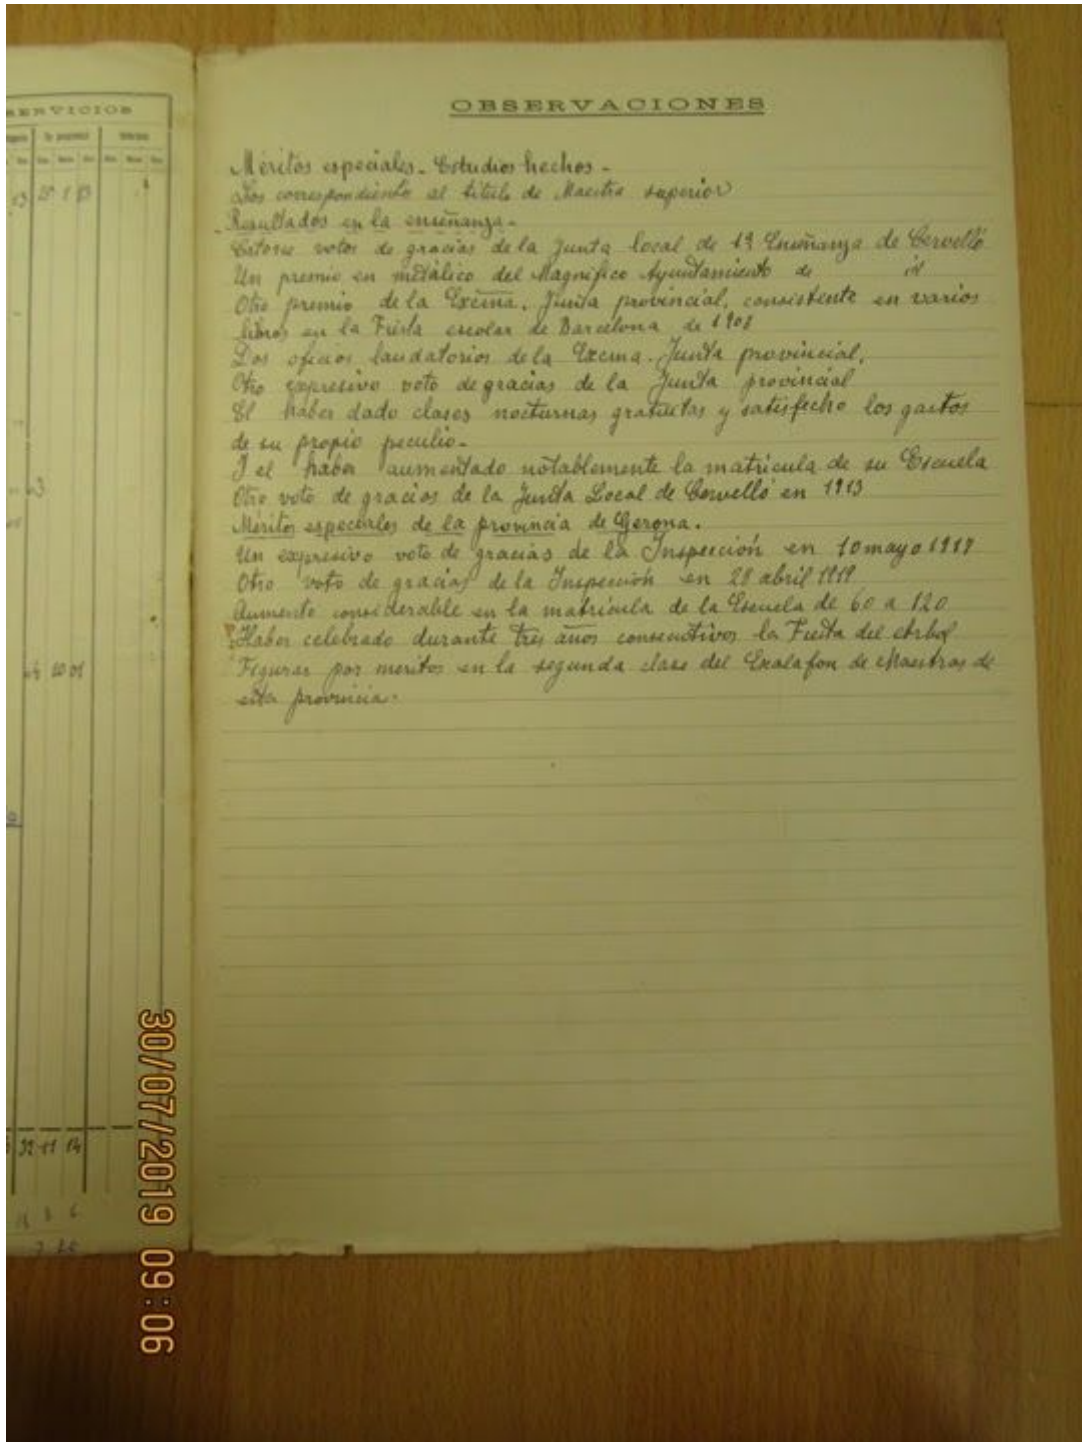 SERVICIOS
OBSERVACIONES
Méritos especiales - Estudios hechos -
Los correspondiente al título de Maestra superior
Resultados en la enseñanza -
Catorce votos de gracias de la Junta local de 1ª Enseñanza de Cervelló
Un premio en metálico del Magnífico Ayuntamiento de id
Otro premio de la Excma. Junta provincial, consistente en varios
libros en la Fiesta escolar de Barcelona de 1908
Dos oficios laudatorios de la Excma. Junta provincial.
Otro expresivo voto de gracias de la Junta provincial
El haber dado clases nocturnas gratuitas y satisfecho los gastos
de su propio peculio -
I el haber aumentado notablemente la matrícula de su Escuela
Otro voto de gracias de la Junta Local de Cervelló en 1913
Méritos especiales de la provincia de Gerona.
Un expresivo voto de gracias de la Inspección en 10 mayo
Otro voto de gracias de la Inspección en 28 abril 1919
Aumento considerable en la matrícula de la Escuela de 60 a 120
Haber celebrado durante tres años consecutivos la Fiesta del Arbol
Figurar por meritos en la segunda clase del Escalafon de Maestras de
esta provincia.
32 11 14
30/07/2019 09:06